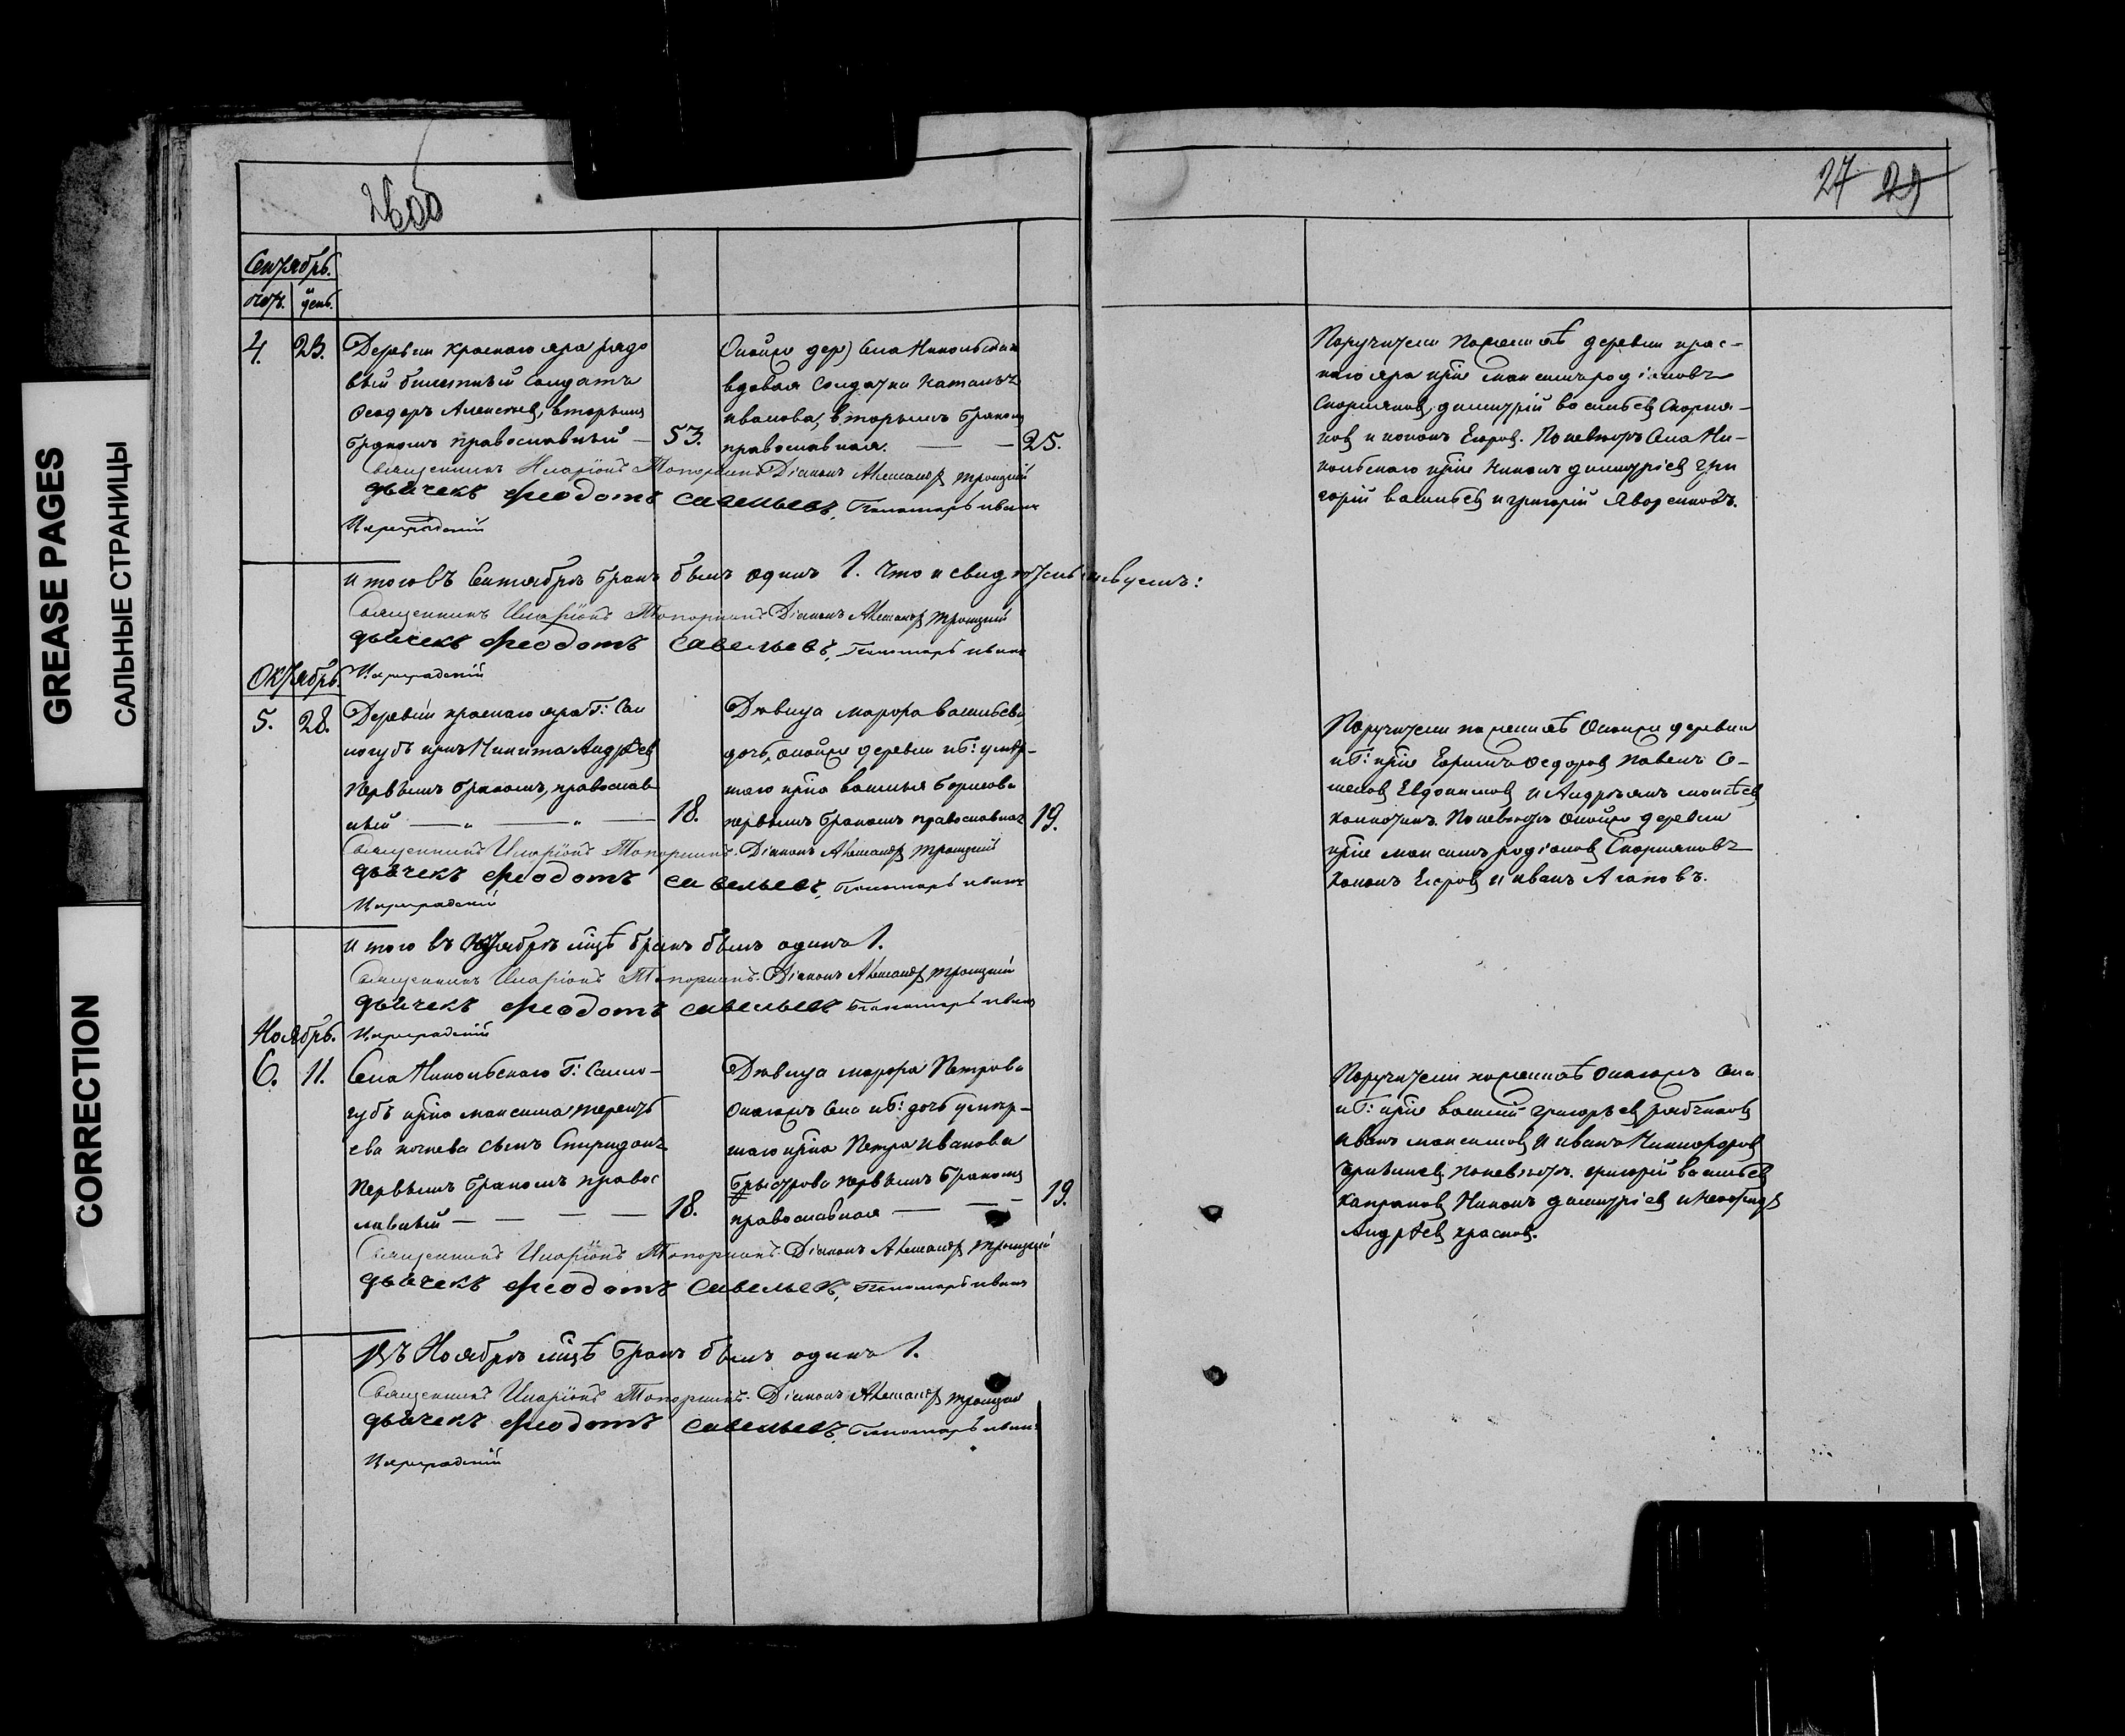 GREASE PAGES
САЛЬНЫЕ СТРАНИЦЫ
CORRECTION
27 29
Сентябрь.
день.
4. 23.
Деревни краснаго яра рядо
вый билетный солдатъ
Ѳеодоръ Алексѣев, вторымъ
бракомъ православный — 53.
Оной дер) села Никольскаго
вдовая солдатка Наталья
иванова, вторымъ бракомъ
православная. — — 25.
Священникъ Иларіонъ Топорнинъ Діаконъ Александр Троицкий
дьячекъ Феодотъ савельевъ, Пономарь иванъ
Цареградскій
Поручители по женихѣ деревни крас-
наго яра максимъ родіоновъ
Скорняков, димитрій васильев Скорня-
ков и кононъ Егоров. По невѣстѣ села Ни-
кольскаго Никонъ димитріев гри
горій васильев и григорій
итого въ Сентябрѣ бракъ былъ одинъ 1. Что и свидѣтельствуемъ:
Священникъ Иларіонъ Топорнинъ Діаконъ Александр Троицкий
дьячекъ Феодотъ савельевъ, Пономарь иванъ
Цареградскій
Октябрь.
5. 28.
Деревни краснаго яра Г:
Никита Андрѣев
первымъ бракомъ, православ
ный — „ — „ — 18.
Дѣвица марфа васильева
дочь, оной деревни умер-
шаго василья борисова
первымъ бракомъ православная 19.
Священникъ Иларіонъ Топорнинъ. Діаконъ Александр Троицкий
дьячекъ Феодотъ савельевъ, Пономарь иванъ
Цареградскій
Поручители по женихѣ Оной деревни
Ефимъ Ѳедоров павелъ Се-
менов Евдокимов и Андреянъ моисѣев
По невѣстѣ оной деревни
максимъ родіонов Скорняковъ
кононъ Егоров и иванъ Агаповъ.
итого въ Октябрѣ мцѣ бракъ былъ одинъ 1.
Священникъ Иларіонъ Топорнинъ. Діаконъ Александр Троицкий
дьячекъ Феодотъ савельевъ Пономарь иванъ
Цареградскій
Ноябрь.
6. 11.
Села Никольскаго Г:
максима
сынъ Спиридонъ
первымъ бракомъ правос
лавный — — — — 18.
Дѣвица марфа Петрова
Онагожъ села дочь умер-
шаго Петра иванова
первымъ бракомъ
православная — — 19.
Священникъ Иларіонъ Топорнинъ. Діаконъ Александр Троицкий
дьячекъ Феодотъ савельевъ, Пономарь иванъ
Поручители по женихѣ онагожъ села
василій григорьев рябчиков
иванъ максимов и иванъ Никифоров
по невѣстѣ. григорій васильев
Никонъ димитріев и
Андрѣев краснов.
Въ Ноябрѣ мцѣ бракъ былъ одинъ 1.
Священникъ Иларіонъ Топорнинъ. Діаконъ Александр Троицкий
дьячекъ Феодотъ савельевъ, Пономарь иванъ
Цареградскій